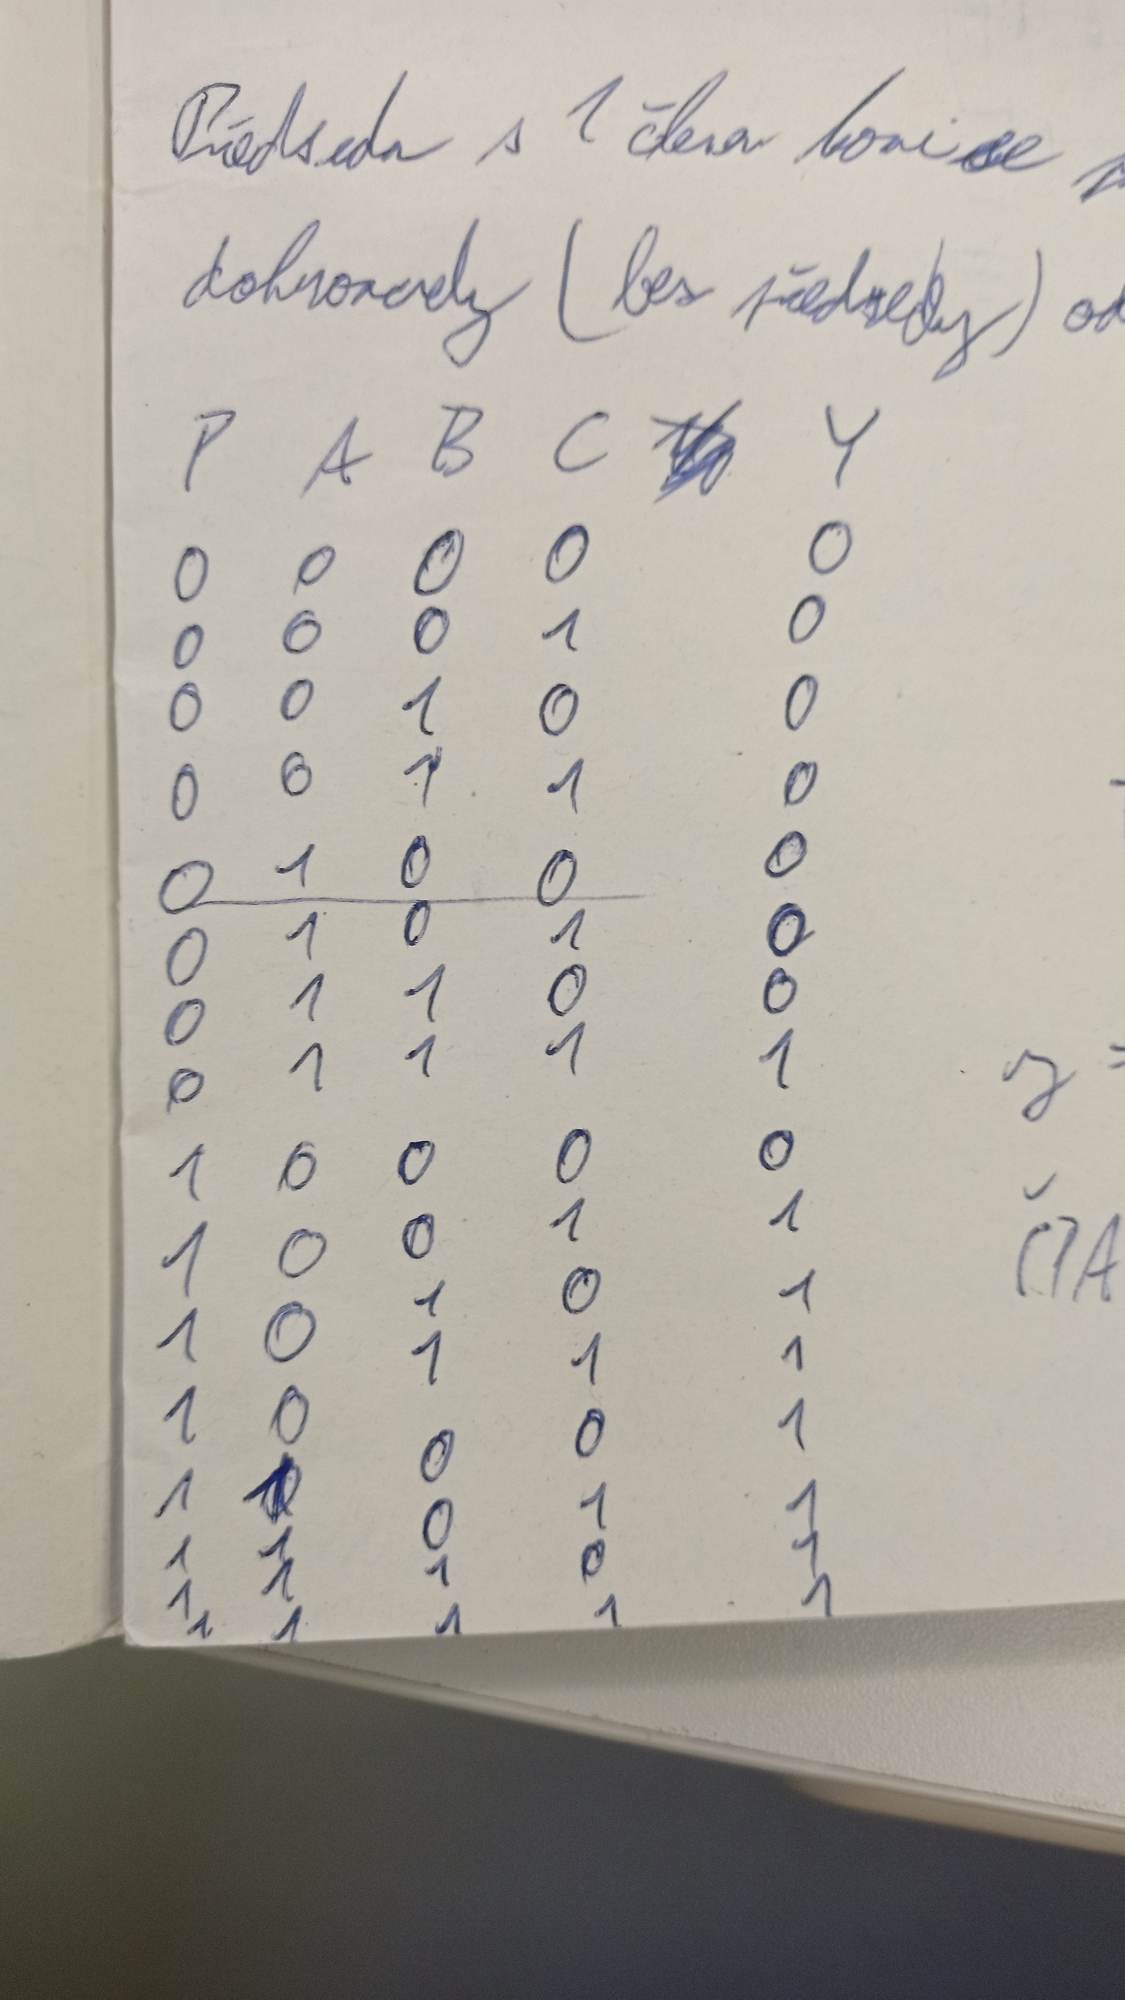 Předseda s 1 člena komise
dohromady (bez předsedy) od
P A B C Y
0 0 0 0 0
0 0 0 1 0
0 0 1 0 0
0 0 1 1 0
0 1 0 0 0
0 1 0 1 0
0 1 1 0 0
0 1 1 1 1
y =
1 0 0 0 0
1 0 0 1 1
ČTA
1 0 1 0 1
1 0 1 1 1
1 1 0 0 1
1 1 0 1 1
1 1 1 0 1
1 1 1 1 1